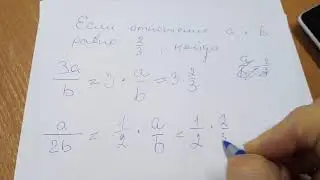 Если отношение a к b
равно 2/3, когда
3a/b = 3 · a/b = 3 2/3
a/2b = 1/2 · a/b = 1/2 ·